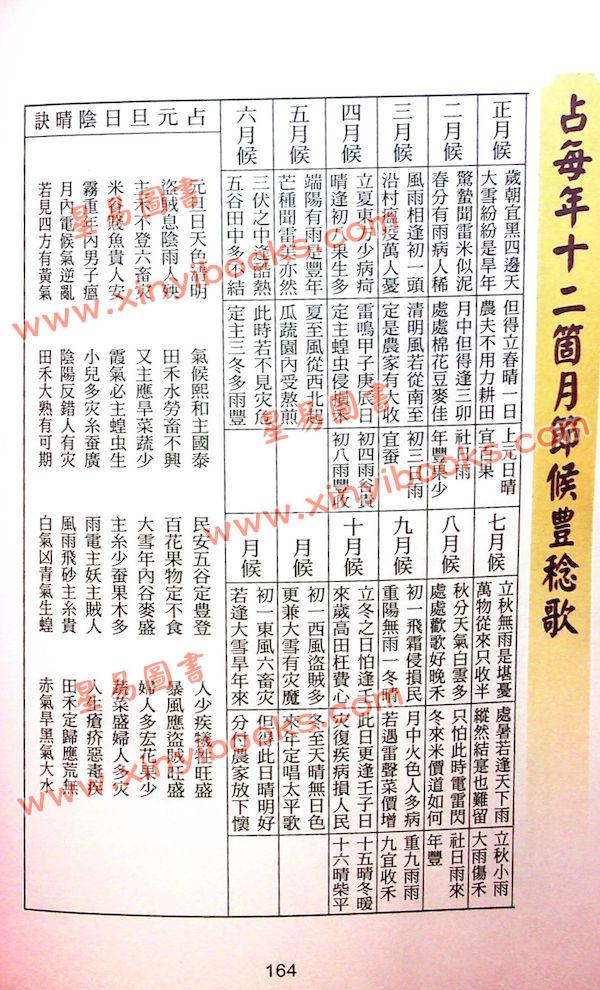 占每年十二箇月節候豐稔歌
正月候
歲朝宜黑四邊天
大雪紛紛是旱年
但得立春晴一日
農夫不用力耕田
上元日晴
宜百果
二月候
驚蟄聞雷米似泥
春分有雨病人稀
月中但得逢三卯
處處棉花豆麥佳
社日雨
年豐果少
三月候
風雨相逢初一頭
沿村瘟疫萬人憂
清明風若從南至
定是農家有大收
初三日雨
宜蚕
四月候
立夏東風少病疴
晴逢初八果生多
雷鳴甲子庚辰日
定主蝗虫侵損禾
初四雨谷貴
初八雨豐收
五月候
端陽有雨是豐年
芒種聞雷美亦然
夏至風從西北起
瓜蔬園內受熬煎
六月候
三伏之中逢酷熱
五谷田中多不結
此時若不見災危
定主三冬多雨豐
七月候
立秋無雨是堪憂
萬物從來只收半
處暑若逢天下雨
縱然結寔也難留
立秋小雨
大雨傷禾
八月候
秋分天氣白雲多
處處歡歌好晚禾
只怕此時電雷閃
冬來米價道如何
社日雨來
年豐
九月候
初一飛霜侵損民
重陽無雨一冬晴
月中火色人多病
若遇雷聲菜價增
重九雨雨
九宜收禾
十月候
立冬之日怕逢壬
來歲高田枉費心
此日更逢壬子日
災復疾病損人民
十五晴冬暖
十六晴柴平
月候
初一西風盜賊多
更兼大雪有災魔
冬至天晴無日色
來年定唱太平歌
月候
初一東風六畜災
若逢大雪旱年來
但得此日晴明好
分付農家放下懷
占元旦日陰晴訣
元旦日天色清明
氣候熙和主國泰
民安五谷定豊登
人少疾犧牲旺盛
盜賊息陰雨人殃
田禾水勞畜不興
百花果物定不食
暴風應盜賊旺盛
主禾不登六畜災
又主應旱菜蔬少
大雪年內谷麥盛
婦人多宏花果少
米谷賤魚貴人安
霞氣必主蝗虫生
主糸少蚕果木多
蔬菜盛婦人多灾
霧重年內男子瘟
小兒多灾糸蚕廣
雨電主妖主賊人
人生瘡疥惡毒疾
月內電候氣逆亂
陰陽反錯人有灾
風雨飛砂主糸貴
田禾定歸應荒無
若見四方有黃氣
田禾大熟有可期
白氣凶青氣生蝗
赤氣旱黑氣大水
164
星易圖書
www.xinyibooks.com
星易圖書
www.xinyibooks.com
星易圖書
www.xinyibooks.com